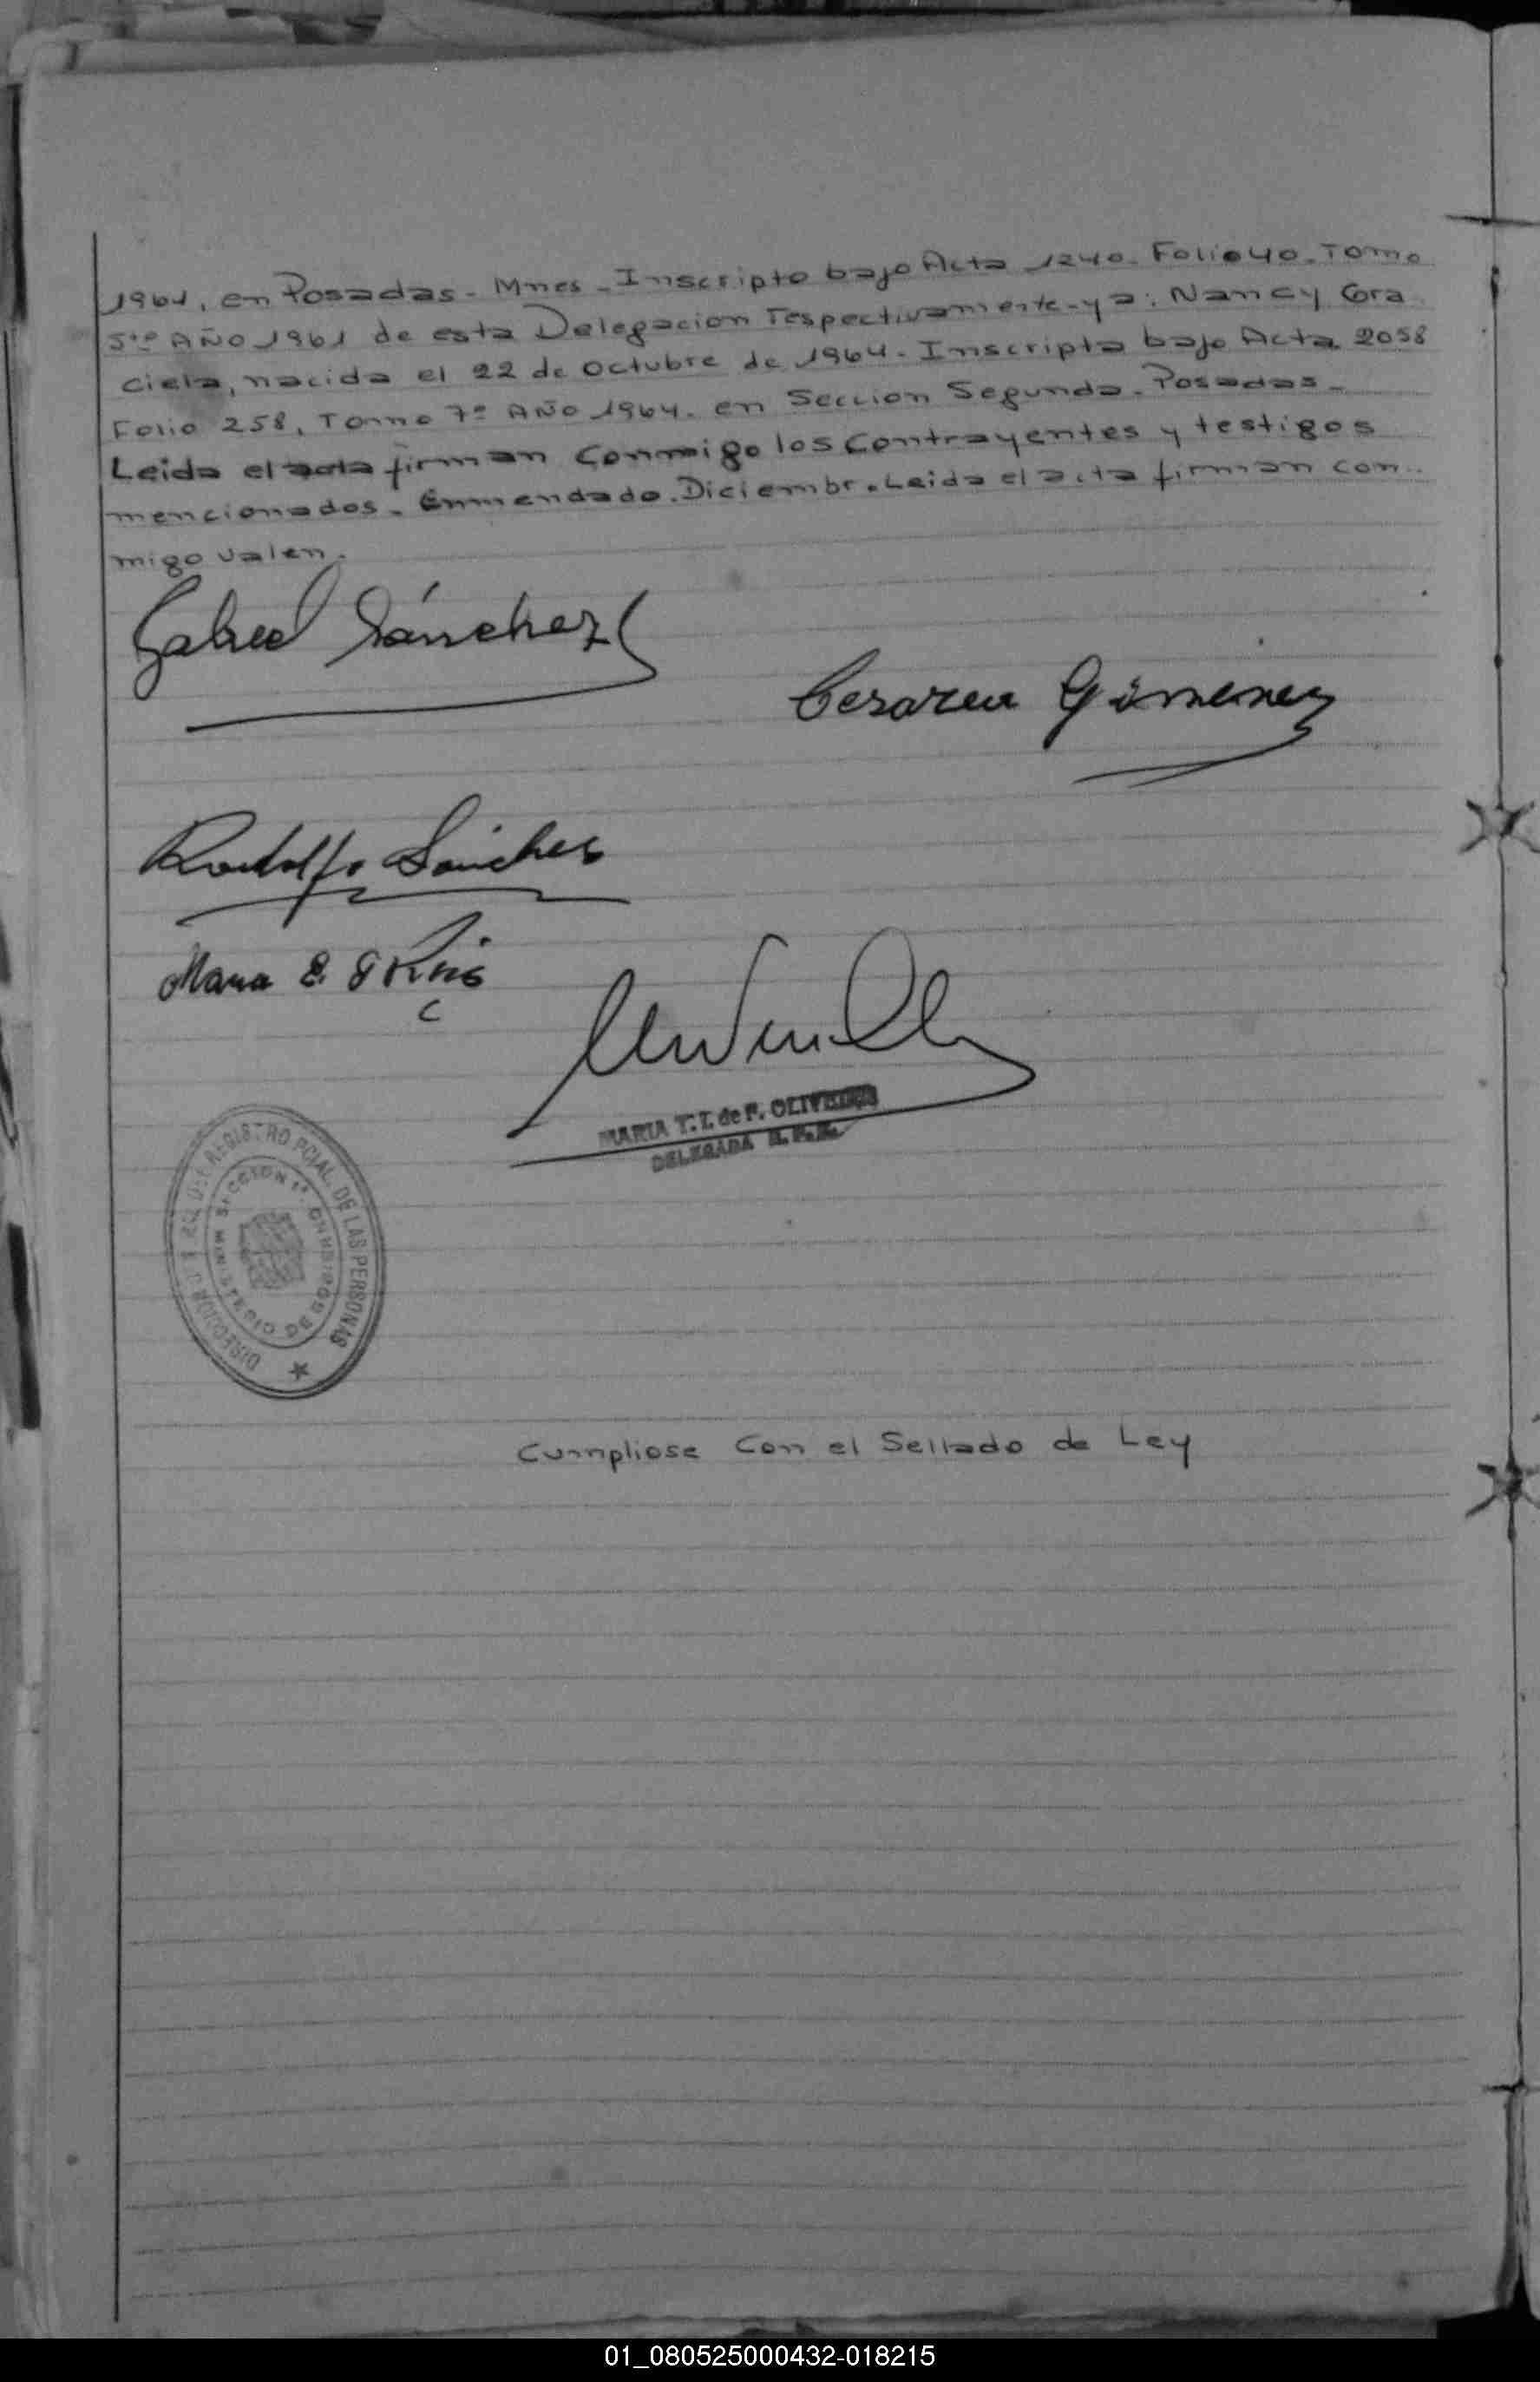 1961, en Posadas - Mnes - Inscripto bajo Acta 1240. Folio 40. Tomo
5to AÑO 1961 de esta Delegacion respectivamente - y a: Nancy Gra
ciela, nacida el 22 de Octubre de 1964 - Inscripta bajo Acta 2058
Folio 258, Tomo 7º AÑO 1964. en Seccion Segunda - Posadas -
Leida el acta firman conmigo los contrayentes y testigos
mencionados - Enmendado. Diciembr. Leida el acta firman con-
migo valen.
Gabriel Sánchez
Cesarea Gimenez
Rodolfo Sánchez
Maria E.
MARIA T. I. de F. OLIVEIRA
DELEGADA R. P. P.
DIRECCION GRAL DEL REGISTRO PCIAL. DE LAS PERSONAS
SECCION 1ª
MINISTERIO DE GOBIERNO
Cumpliose Con el Sellado de Ley
01_080525000432-018215